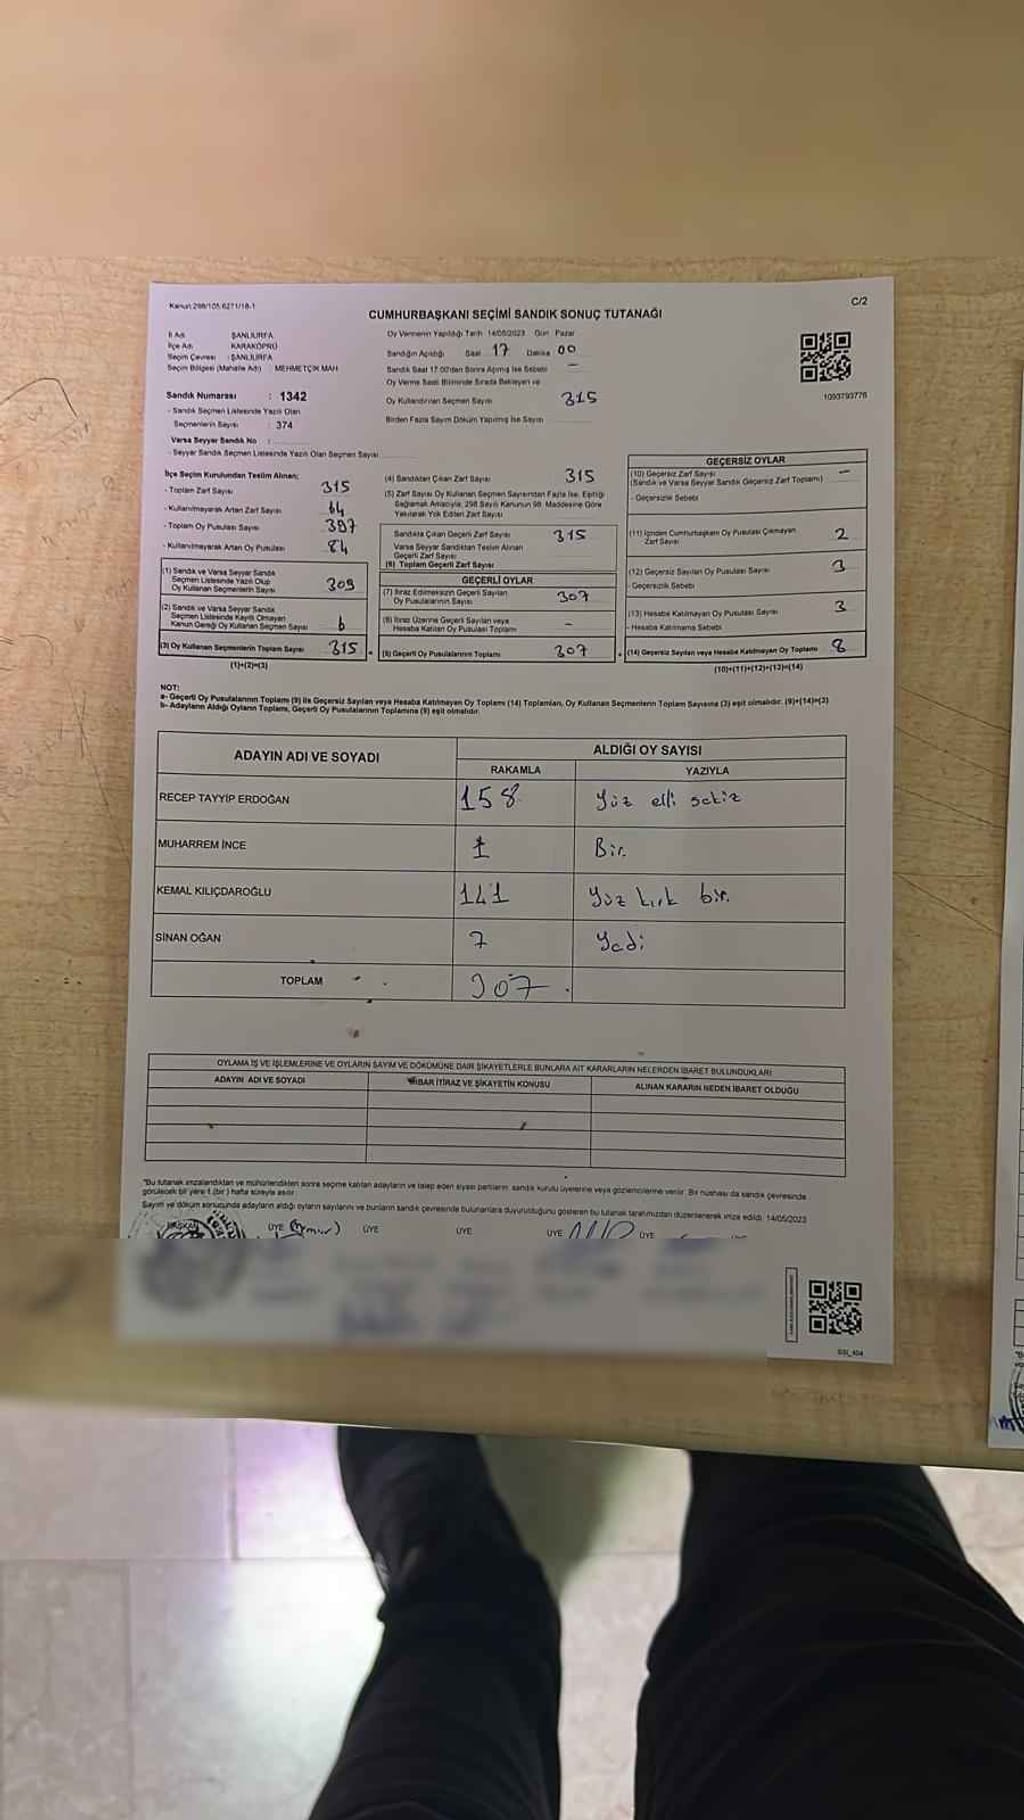 Kanun 298/105 6271/18-1
C/2
CUMHURBAŞKANI SEÇİMİ SANDIK SONUÇ TUTANAĞI
İl Adı : ŞANLIURFA
İlçe Adı : KARAKÖPRÜ
Seçim Çevresi : ŞANLIURFA
Seçim Bölgesi (Mahalle Adı) : MEHMETÇİK MAH
Sandık Numarası : 1342
- Sandık Seçmen Listesinde Yazılı Olan
Seçmenlerin Sayısı : 374
Varsa Seyyar Sandık No :
- Seyyar Sandık Seçmen Listesinde Yazılı Olan Seçmen Sayısı
Oy Vermenin Yapıldığı Tarih 14/05/2023 Gün Pazar
Sandığın Açıldığı Saat 17 Dakika 00
Sandık Saat 17.00'den Sonra Açılmış İse Sebebi —
Oy Verme Saati Bitiminde Sırada Bekleyen ve
Oy Kullandırılan Seçmen Sayısı 315
Birden Fazla Sayım Döküm Yapılmış İse Sayısı
1093793776
İlçe Seçim Kurulundan Teslim Alınan;
- Toplam Zarf Sayısı 315
- Kullanılmayarak Artan Zarf Sayısı 64
- Toplam Oy Pusulası Sayısı 397
- Kullanılmayarak Artan Oy Pusulası 84
(1) Sandık ve Varsa Seyyar Sandık
Seçmen Listesinde Yazılı Olup
Oy Kullanan Seçmenlerin Sayısı 309
(2) Sandık ve Varsa Seyyar Sandık
Seçmen Listesinde Kayıtlı Olmayan
Kanun Gereği Oy Kullanan Seçmen Sayısı 6
(3) Oy Kullanan Seçmenlerin Toplam Sayısı 315
(1)+(2)=(3)
(4) Sandıktan Çıkan Zarf Sayısı 315
(5) Zarf Sayısı Oy Kullanan Seçmen Sayısından Fazla İse, Eşitliği
Sağlamak Amacıyla, 298 Sayılı Kanunun 98. Maddesine Göre
Yakılarak Yok Edilen Zarf Sayısı
Sandıkta Çıkan Geçerli Zarf Sayısı 315
Varsa Seyyar Sandıktan Teslim Alınan
Geçerli Zarf Sayısı
(6) Toplam Geçerli Zarf Sayısı
GEÇERLİ OYLAR
(7) İtiraz Edilmeksizin Geçerli Sayılan
Oy Pusulalarının Sayısı 307
(8) İtiraz Üzerine Geçerli Sayılan veya
Hesaba Katılan Oy Pusulası Toplamı —
(9) Geçerli Oy Pusulalarının Toplamı 307
GEÇERSİZ OYLAR
(10) Geçersiz Zarf Sayısı —
(Sandık ve Varsa Seyyar Sandık Geçersiz Zarf Toplamı)
- Geçersizlik Sebebi
(11) İçinden Cumhurbaşkanı Oy Pusulası Çıkmayan
Zarf Sayısı 2
(12) Geçersiz Sayılan Oy Pusulası Sayısı 3
- Geçersizlik Sebebi
(13) Hesaba Katılmayan Oy Pusulası Sayısı 3
- Hesaba Katılmama Sebebi
(14) Geçersiz Sayılan veya Hesaba Katılmayan Oy Toplamı 8
(10)+(11)+(12)+(13)=(14)
NOT:
a- Geçerli Oy Pusulalarının Toplamı (9) ile Geçersiz Sayılan veya Hesaba Katılmayan Oy Toplamı (14) Toplamları, Oy Kullanan Seçmenlerin Toplam Sayısına (3) eşit olmalıdır. (9)+(14)=(3)
b- Adayların Aldığı Oyların Toplamı, Geçerli Oy Pusulalarının Toplamına (9) eşit olmalıdır.
ADAYIN ADI VE SOYADI
ALDIĞI OY SAYISI
RAKAMLA YAZIYLA
RECEP TAYYİP ERDOĞAN 158 Yüz elli sekiz
MUHARREM İNCE 1 Bir.
KEMAL KILIÇDAROĞLU 141 Yüz kırk bir.
SİNAN OĞAN 7 Yedi
TOPLAM 307
OYLAMA İŞ VE İŞLEMLERİNE VE OYLARIN SAYIM VE DÖKÜMÜNE DAİR ŞİKAYETLERLE BUNLARA AİT KARARLARIN NELERDEN İBARET BULUNDUKLARI
ADAYIN ADI VE SOYADI İHBAR İTİRAZ VE ŞİKAYETİN KONUSU ALINAN KARARIN NEDEN İBARET OLDUĞU
"Bu tutanak imzalandıktan ve mühürlendikten sonra seçime katılan adayların ve talep eden siyasi partilerin sandık kurulu üyelerine veya gözlemcilerine verilir. Bir nüshası da sandık çevresinde
görülecek bir yere 1 (bir) hafta süreyle asılır
Sayım ve döküm sonucunda adayların aldığı oyların sayılarını ve bunların sandık çevresinde bulunanlara duyurulduğunu gösteren bu tutanak tarafımızdan düzenlenerek imza edildi. 14/05/2023
BAŞKAN ÜYE ÜYE ÜYE ÜYE ÜYE